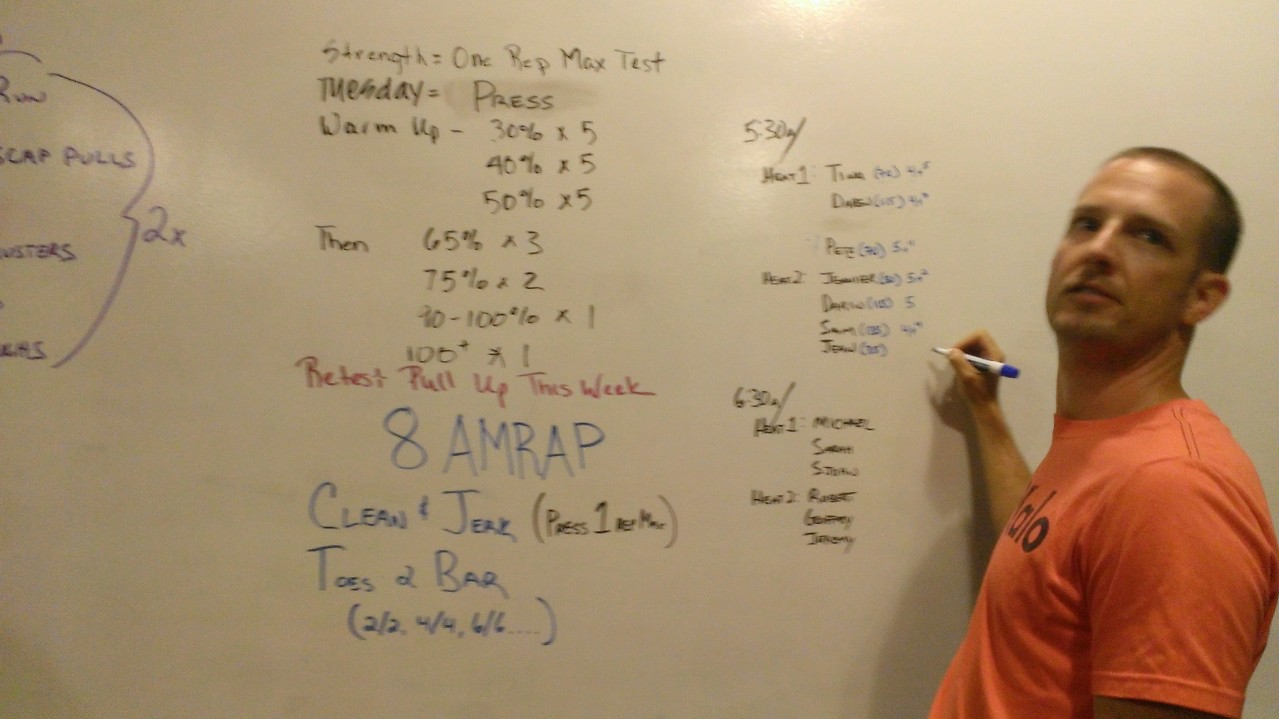 Run
SCAP PULLS
2x
Strength = One Rep Max Test
TUESDAY = PRESS
Warm Up - 30% x 5
40% x 5
50% x 5
Then 65% x 3
75% x 2
90-100% x 1
100+ x 1
Retest Pull Up This Week
8 AMRAP
CLEAN & JERK (PRESS 1 REP MAX)
TOES 2 BAR
(2/2, 4/4, 6/6.....)
5:30a/
HEAT 1: TINA (70)
(115)
PETE (70)
HEAT 2: JENNIFER
5
SAM
JEAN
6:30a/
HEAT 1: MICHAEL
SARAH
HEAT 2: ROBERT
GEOFFREY
JEREMY
alo